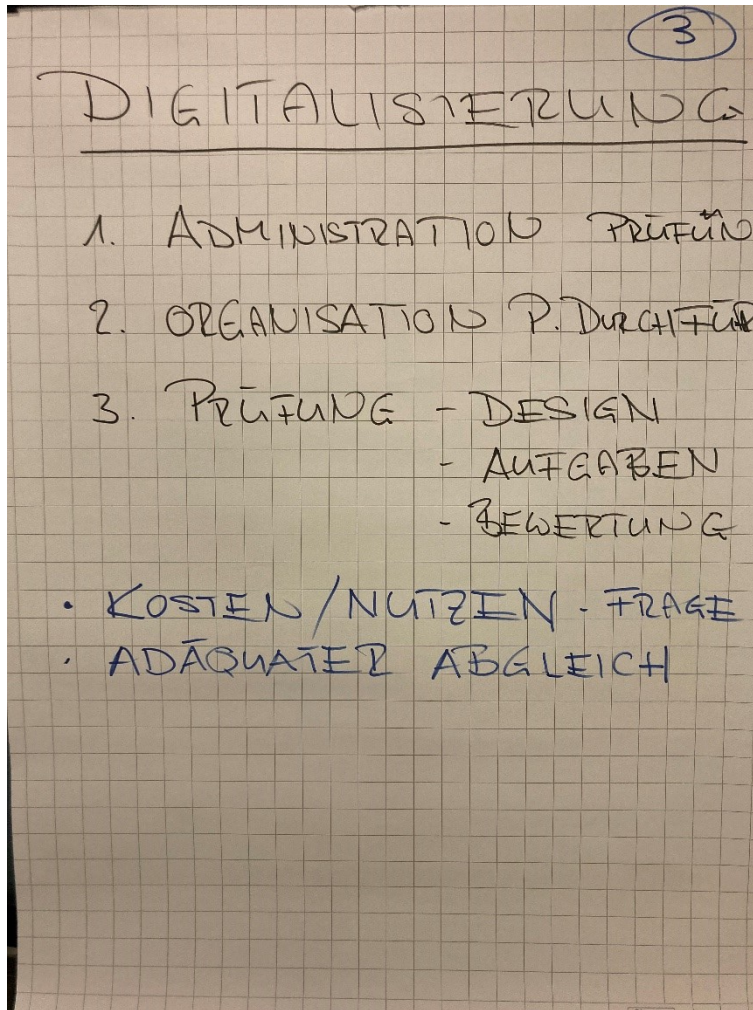 3
DIGITALISIERUNG
1. ADMINISTRATION
2. ORGANISATION P. DURCHFÜH
3. PRÜFUNG - DESIGN
- AUFGABEN
- BEWERTUNG
• KOSTEN/NUTZEN - FRAGE
• ADÄQUATER ABGLEICH